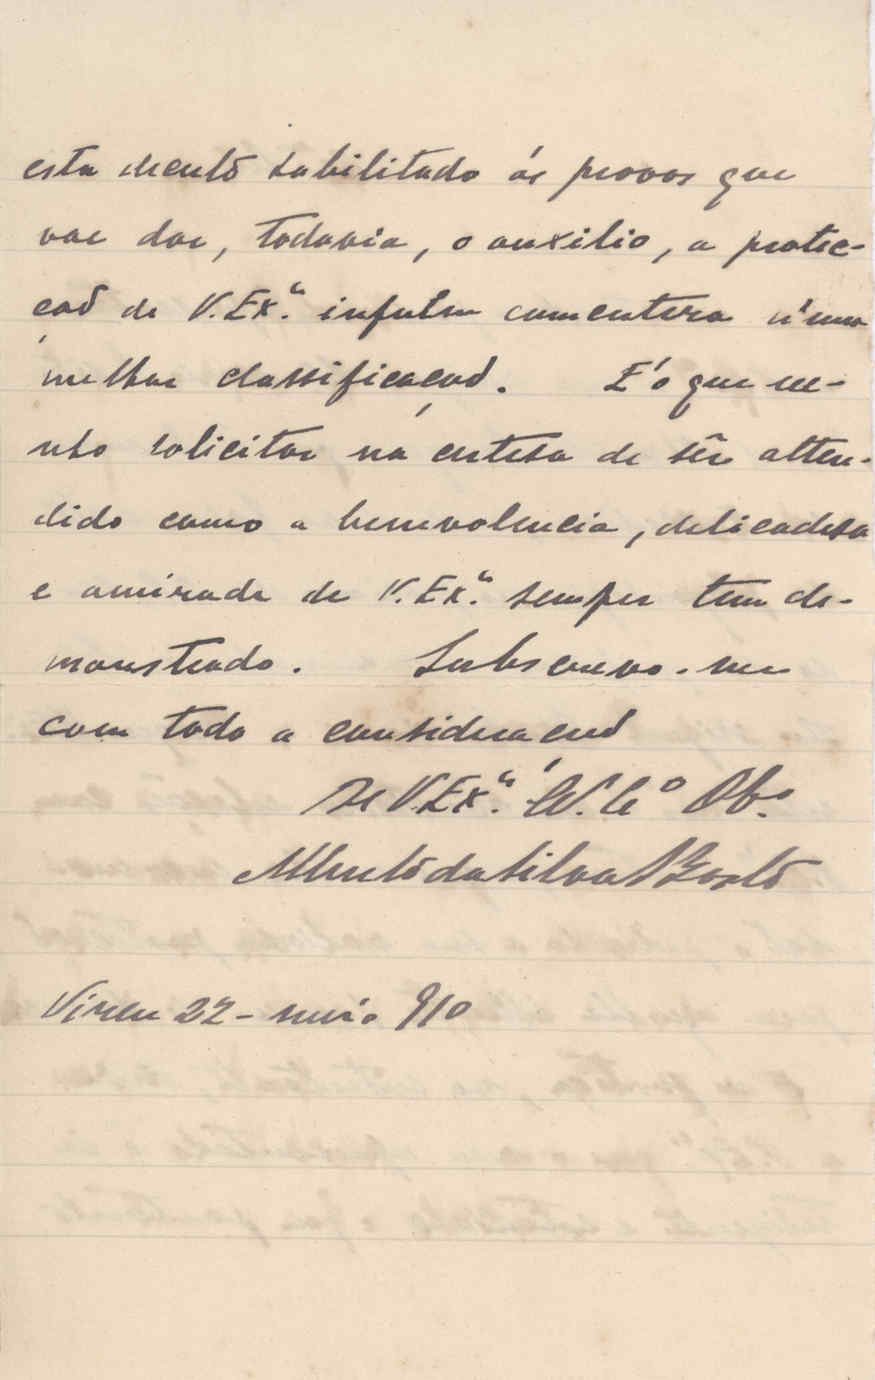 esta muito habilitado ás provas que
vae dar, todavia, o auxilio, a protec-
ção de V. Ex.ª influem
melhor classificação. É o que ve-
nho solicitar na certesa de sêr atten-
dido como a benevolencia, delicadesa
e amisade de V. Ex.ª sempre tem de-
monstrado. Subscrevo-me
com toda a consideração
De V. Ex.ª Cº Obº
Alberto da Silva Basto
Vizeu 22 - maio 910